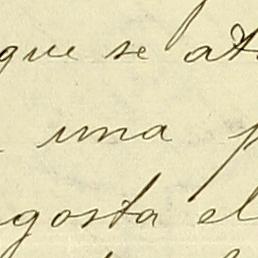 que se at
una p
gosta el